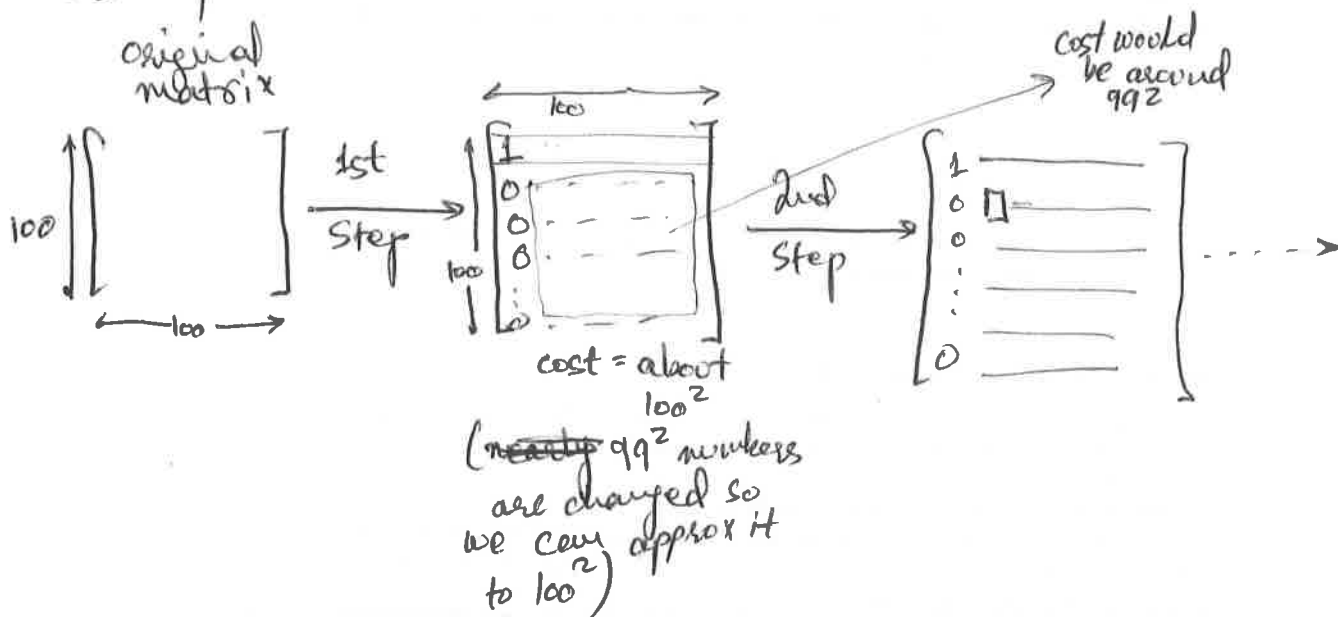 original
matrix
100
100
1st
Step
100
100
1
0
0
0
0
cost = about
100²
(nearly 99² numbers
are changed so
we can approx it
to 100²)
cost would
be around
99²
2nd
Step
1
0
0
0